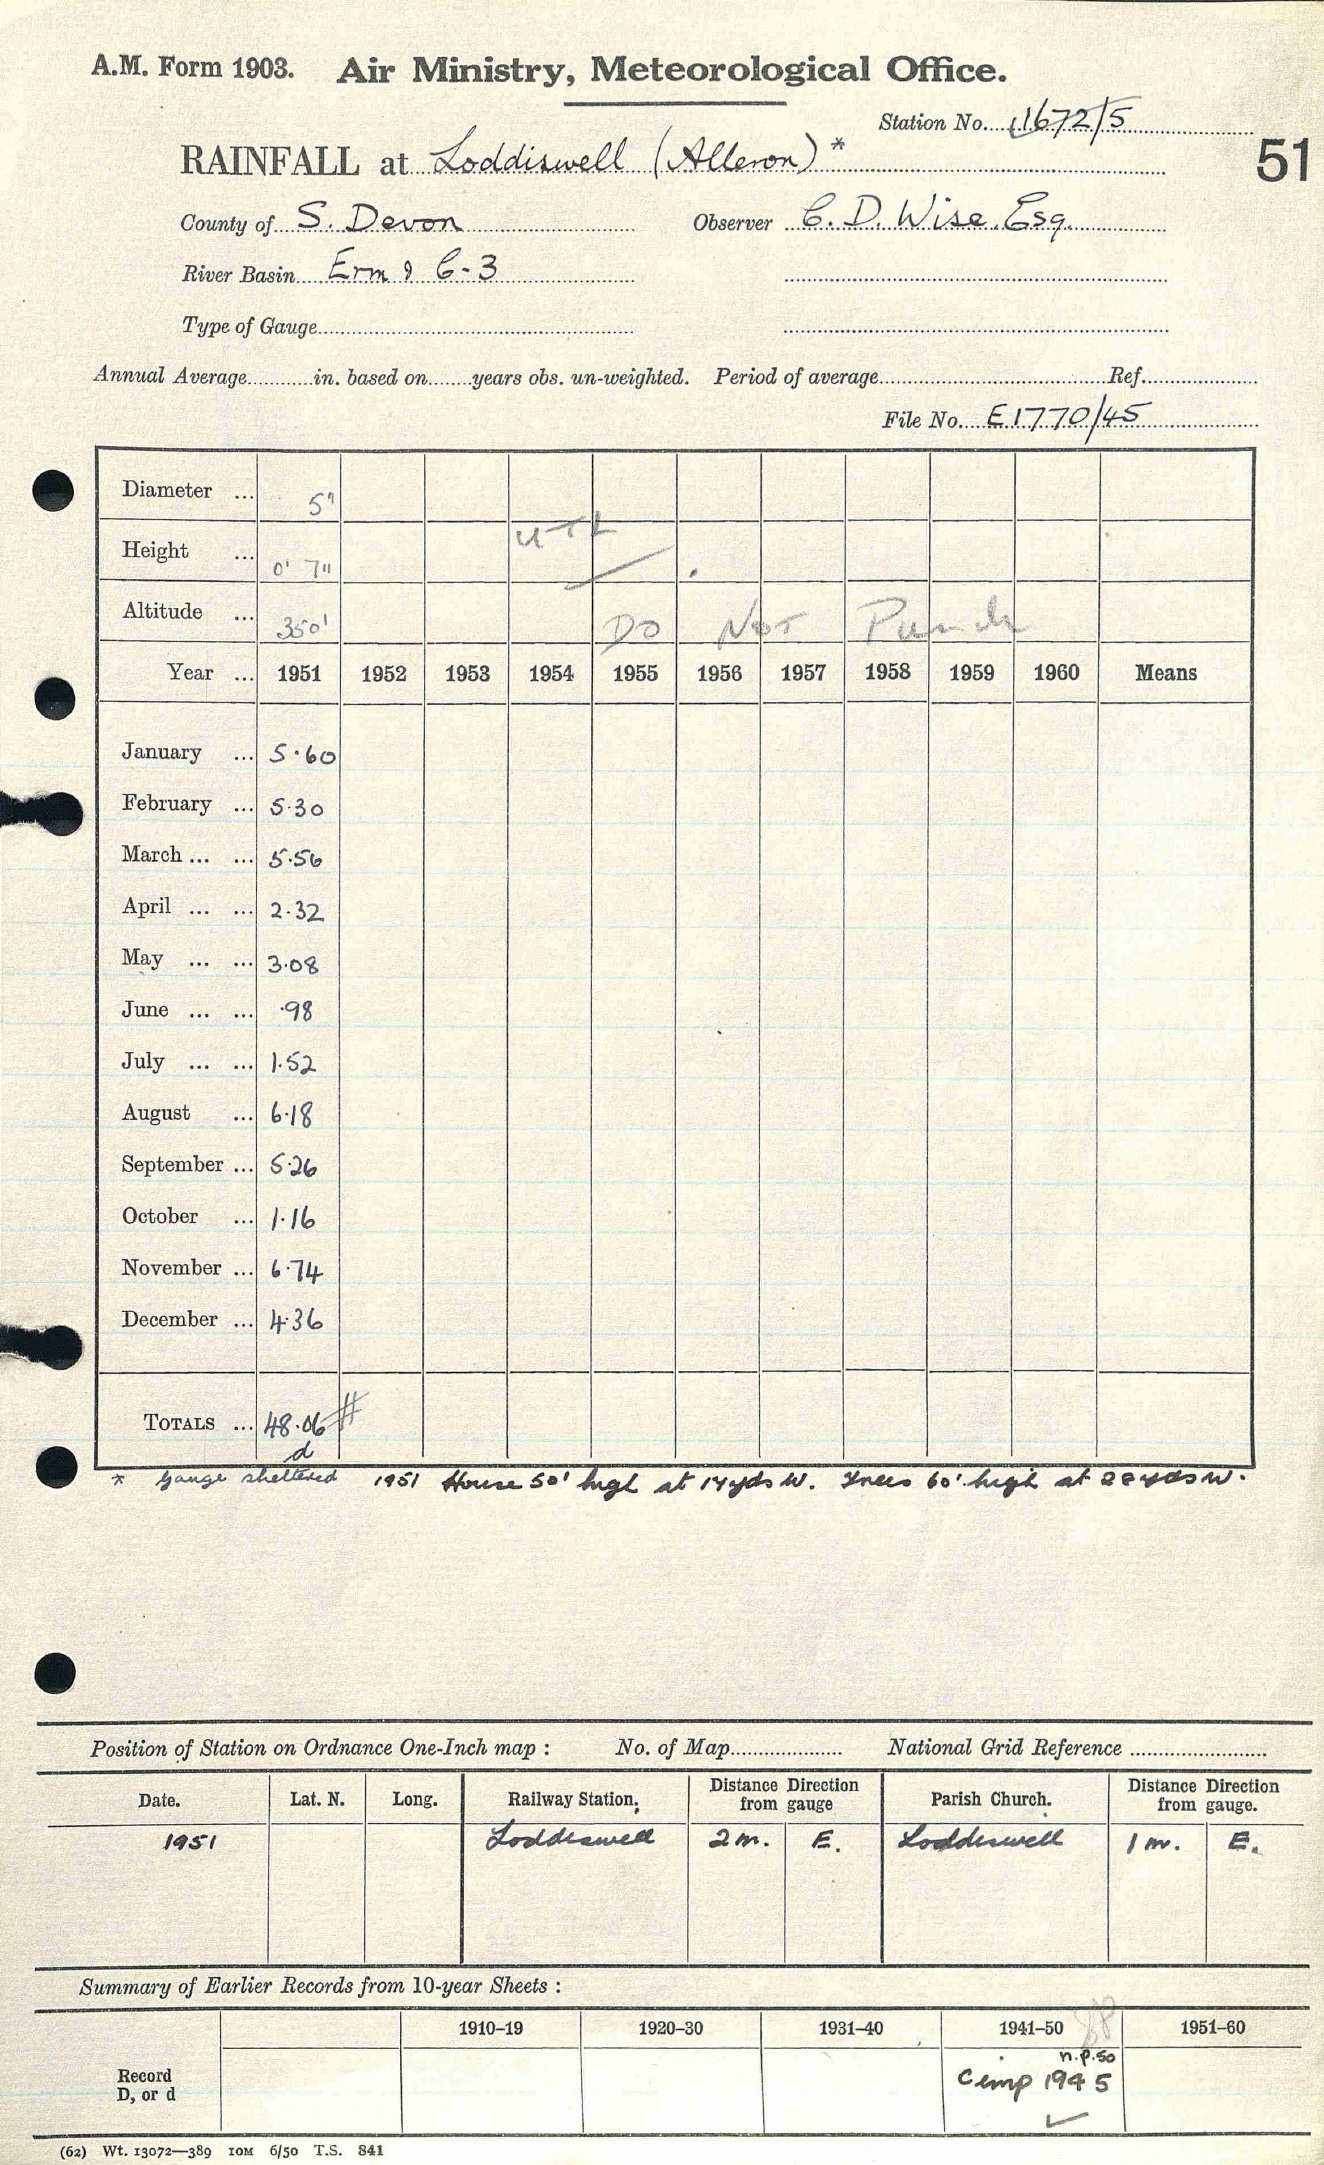 A.M. Form 1903. Air Ministry, Meteorological Office.
Station No. 1672/5
RAINFALL at Loddiswell (Alleron) *
51
County of S. Devon Observer C. D. Wise. Esq.
River Basin Erm & C-3
Type of Gauge
Annual Average in. based on years obs. un-weighted. Period of average Ref.
File No. E1770/45
Diameter ... 5"
Height ... 0' 7"
Altitude ... 350' DO NOT Punch
Year ... 1951 1952 1953 1954 1955 1956 1957 1958 1959 1960 Means
January ... 5.60
February ... 5.30
March ... ... 5.56
April ... ... 2.32
May ... ... 3.08
June ... ... .98
July ... ... 1.52
August ... 6.18
September ... 5.26
October ... 1.16
November ... 6.74
December ... 4.36
TOTALS ... 48.06 #
d
* Gauge sheltered 1951 House 50' high at 14yds W. Trees 60' high at 22yds W.
Position of Station on Ordnance One-Inch map : No. of Map National Grid Reference
Date. Lat. N. Long. Railway Station. Distance Direction from gauge Parish Church. Distance Direction from gauge.
1951 Loddiswell 2 m. E. Loddiswell 1 m. E.
Summary of Earlier Records from 10-year Sheets :
1910-19 1920-30 1931-40 1941-50 1951-60
n.p.50
Record
D, or d
1945
(62) Wt. 13072—389 10M 6/50 T.S. 841